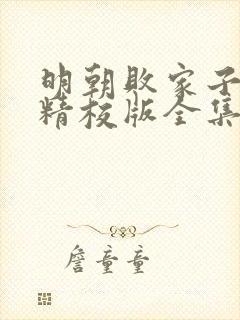 明朝败家子
精校版全集
詹童童